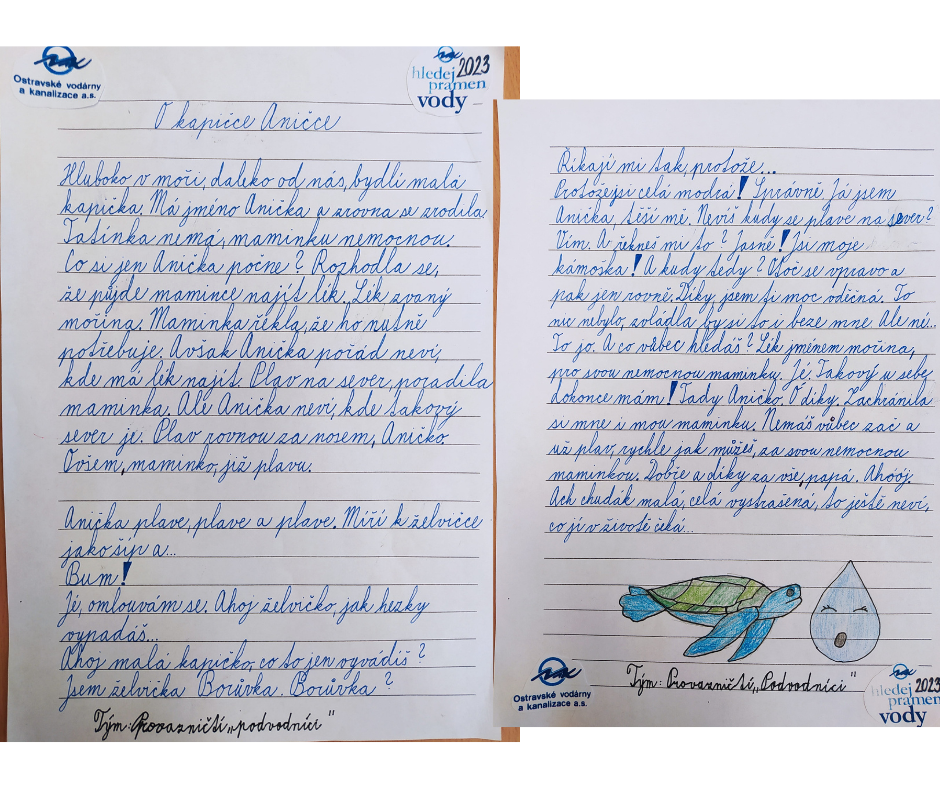 Ostravské vodárny
a kanalizace a.s.
2023
hledej
pramen
vody
O kapičce Aničce
Hluboko v moři, daleko od nás, bydlí malá
kapička. Má jméno Anička a zrovna se zrodila
Tatínka nemá, maminku nemocnou.
Co si jen Anička počne? Rozhodla se,
že půjde mamince najít lék. Lék zvaný
mořina. Maminka řekla, že ho nutně
potřebuje. Avšak Anička pořád neví,
kde má lék najít. Plav na sever, poradila
maminka. Ale Anička neví, kde takový
sever je. Plav rovnou za nosem, Aničko.
Ovšem, maminko, již plavu.
Anička plave, plave a plave. Míří k želvičce
jako šíp a...
Bum!
Jé, omlouvám se. Ahoj želvičko, jak hezky
vypadáš...
Ahoj malá kapičko, co to jen vyvádíš?
Jsem želvička Borůvka. Borůvka?
Tým: Provazničtí „podvodníci"
Říkají mi tak, protože...
Protože jsi celá modrá! Správně. Já jsem
Anička, těší mě. Nevíš kudy se plave na sever?
Vím. A řekneš mi to? Jasně! Jsi moje
kámoška! A kudy tedy? Otoč se vpravo a
pak jen rovně. Díky, jsem ti moc vděčná. To
nic nebylo, zvládla by si to i beze mne. Ale né...
To jo. A co vůbec hledáš? Lék jménem mořina,
pro svou nemocnou maminku. Jé, Takový u sebe
dokonce mám! Tady Aničko. Ó díky. Zachránila
si mne i mou maminku. Nemáš vůbec zač a
už plav, rychle jak můžeš, za svou nemocnou
maminkou. Dobře a díky za vše, papá. Ahóój.
Ach chudák malá, celá vystrašená, to ještě neví,
co jí v životě čeká...
Ostravské vodárny
a kanalizace a.s.
Tým: Provazničtí „Podvodníci"
hledej
2023
pramen
vody